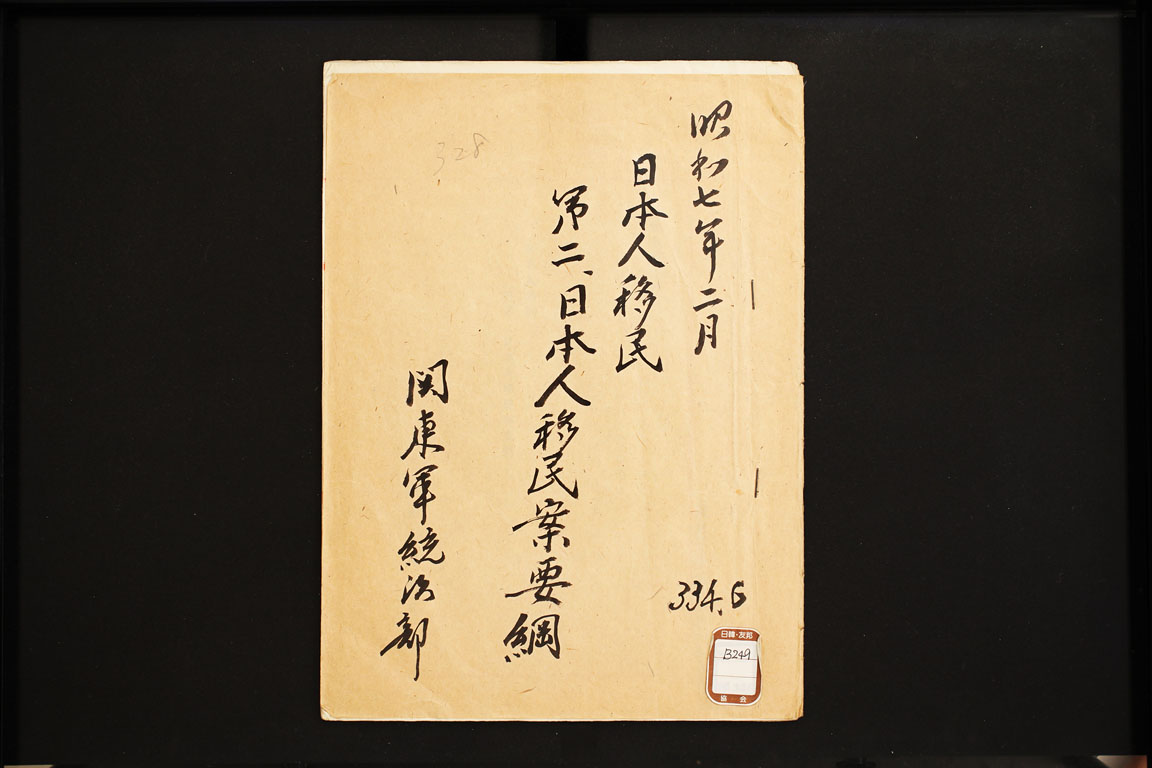 昭和七年二月
日本人移民
第二、日本人移民案要綱
関東軍統治部
328
334.6
日韓・友邦
B249
協会